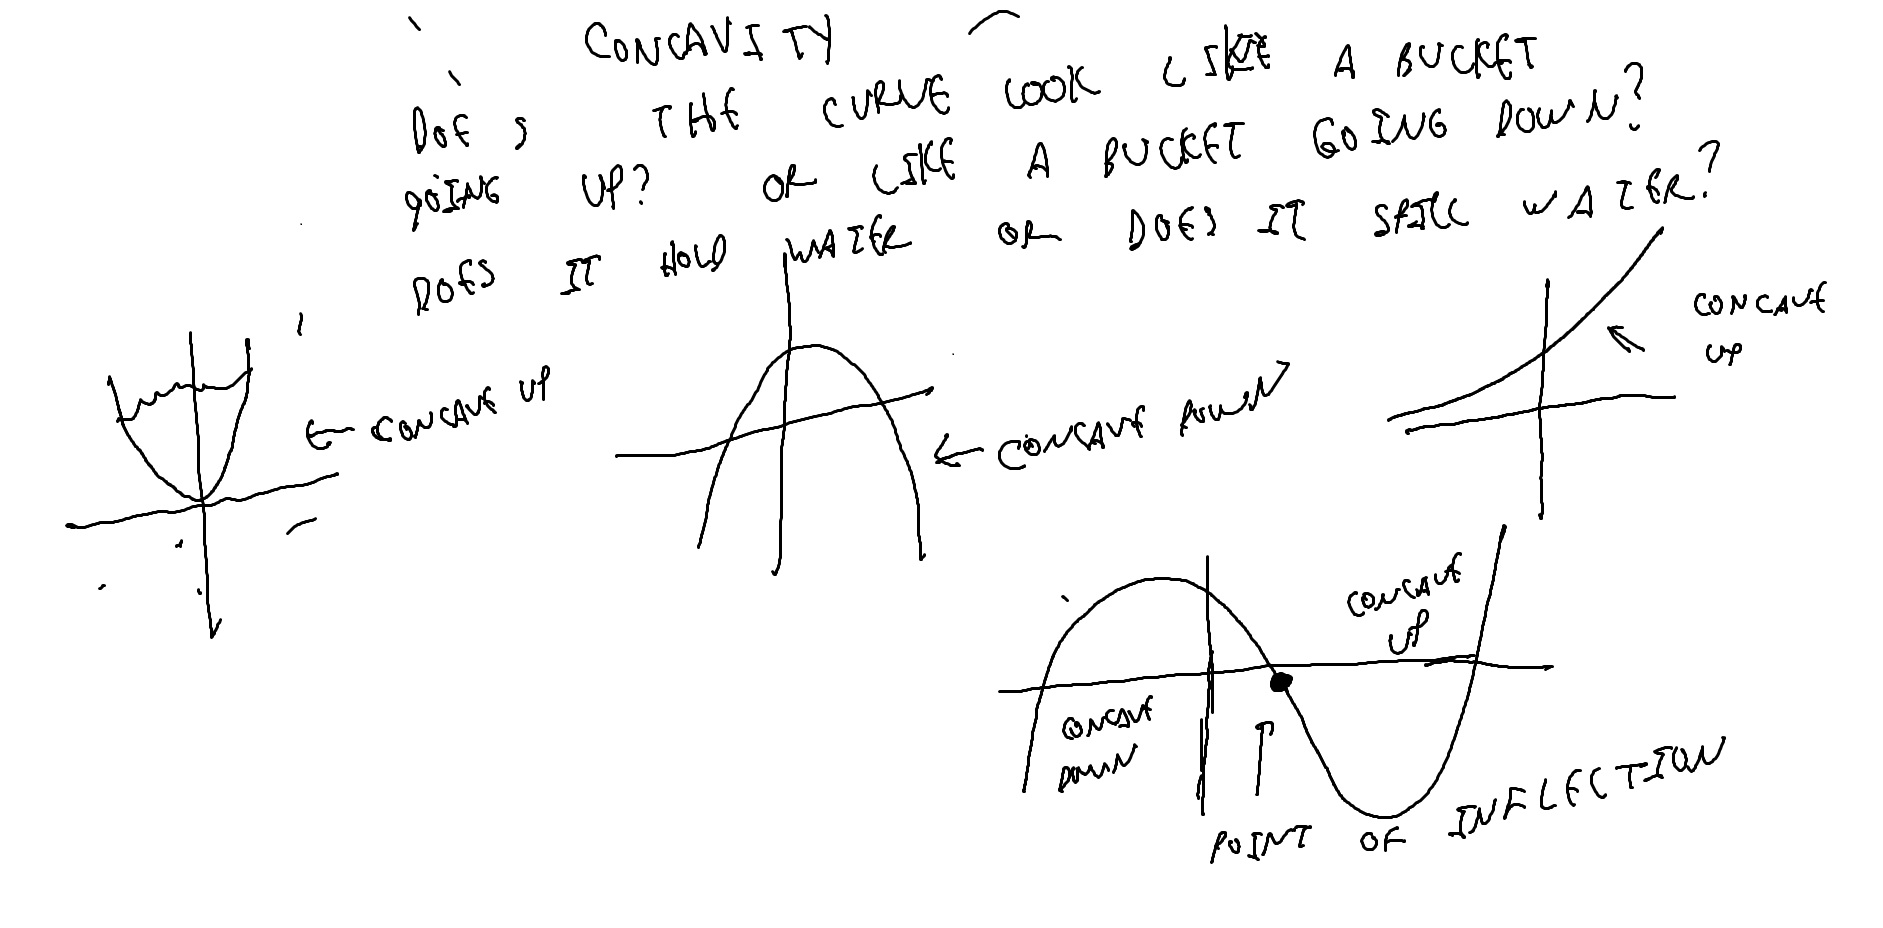 CONCAVITY
DOES THE CURVE LOOK LIKE A BUCKET
GOING UP? OR LIKE A BUCKET GOING DOWN?
DOES IT HOLD WATER OR DOES IT SPILL WATER?
CONCAVE UP
CONCAVE DOWN
CONCAVE
UP
CONCAVE
UP
CONCAVE
DOWN
POINT OF INFLECTION